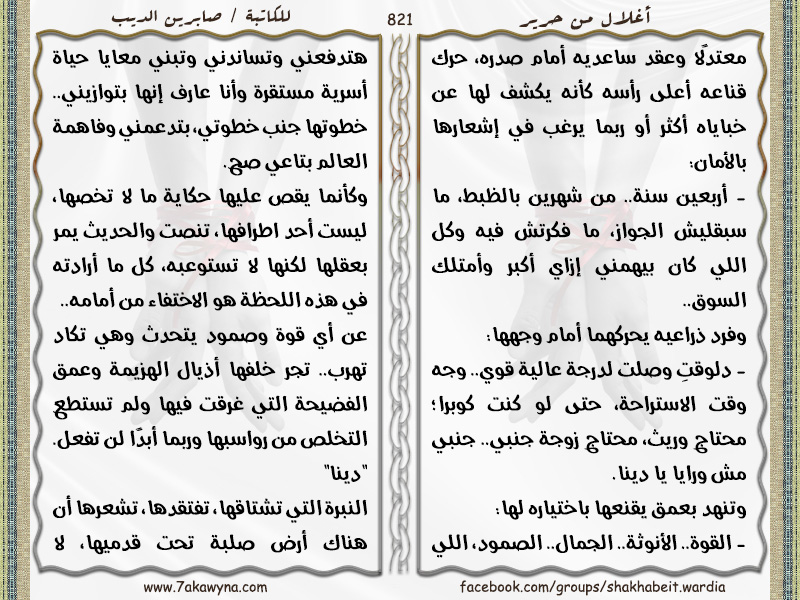 أغلال من حرير
821
للكاتبة / صابرين الديب
معتدلًا وعقد ساعديه أمام صدره، حرك
قناعه أعلى رأسه كأنه يكشف لها عن
خباياه أكثر أو ربما يرغب في إشعارها
بالأمان:
- أربعين سنة.. من شهرين بالظبط، ما
سبقليش الجواز، ما فكرتش فيه وكل
اللي كان بيهمني إزاي أكبر وأمتلك
السوق..
وفرد ذراعيه يحركهما أمام وجهها:
- دلوقتِ وصلت لدرجة عالية قوي.. وجه
وقت الاستراحة، حتى لو كنت كوبرا؛
محتاج وريث، محتاج زوجة جنبي.. جنبي
مش ورايا يا دينا.
وتنهد بعمق يقنعها باختياره لها:
- القوة.. الأنوثة.. الجمال.. الصمود، اللي
هتدفعني وتساندني وتبني معايا حياة
أسرية مستقرة وأنا عارف إنها بتوازيني..
خطوتها جنب خطوتي، بتدعمني وفاهمة
العالم بتاعي صح.
وكأنما يقص عليها حكاية ما لا تخصها،
ليست أحد اطرافها، تنصت والحديث يمر
بعقلها لكنها لا تستوعبه، كل ما أرادته
في هذه اللحظة هو الاختفاء من أمامه..
عن أي قوة وصمود يتحدث وهي تكاد
تهرب.. تجر خلفها أذيال الهزيمة وعمق
الفضيحة التي غرقت فيها ولم تستطع
التخلص من رواسبها وربما أبدًا لن تفعل.
"دينا"
النبرة التي تشتاقها، تفتقدها، تشعرها أن
هناك أرض صلبة تحت قدميها، لا
facebook.com/groups/shakhabeit.wardia
www.7akawyna.com